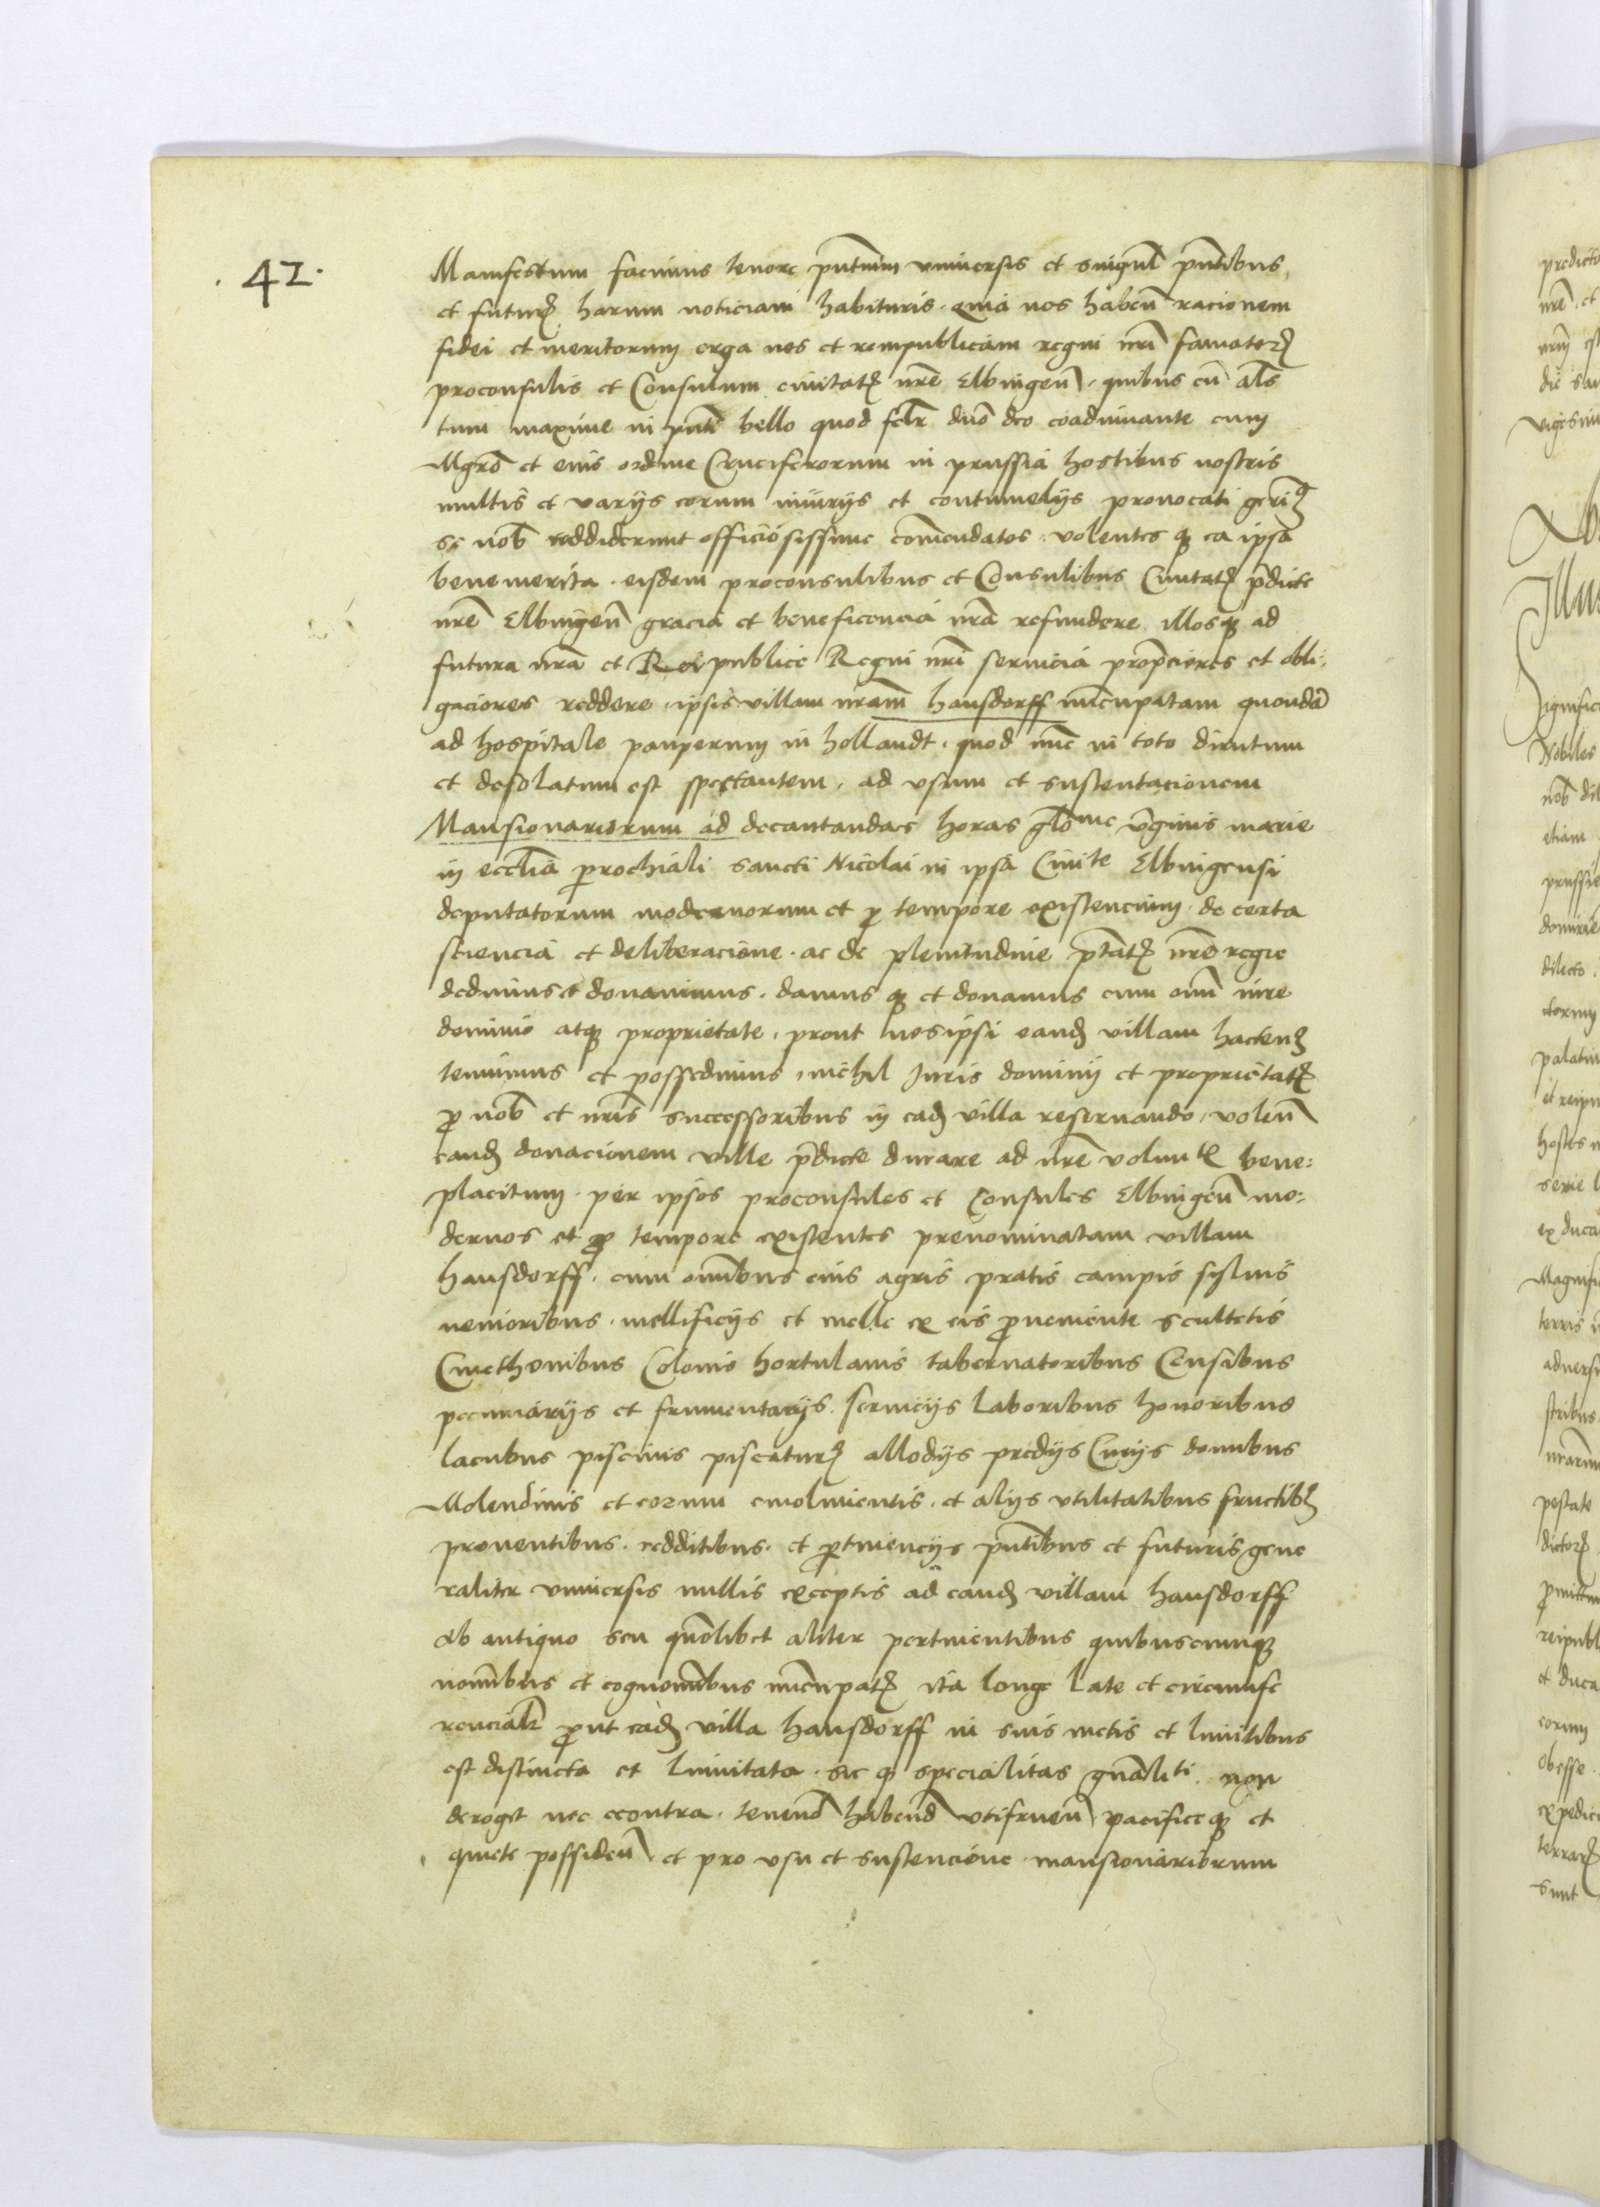 . 42 .
Manifestum facimus tenore pñtium vniuersis et singuł pñtibus
et futuris harum noticiam habituris . quia nos habeñ racionem
fidei et meritorum erga nos et rempublicam regni nr̃i famatorꝝ
proconsulis et Consulum ciuitatꝭ nr̃e Elbingeñ . quibus cũ als
tum maxime in pñti bello quod felr dño deo coadiuuante cum
Mgrõ et eius ordine Cruciferorum in prussia hostibus nostris
multis et varijs eorum iniurijs et contumelijs prouocati gerimꝰ
se nob̃ reddiderunt officiosissime com̃endatos . volentes qꝫ ea ipsa
benemerita . eisdem proconsulibus et Consulibus Ciuitatꝭ p̃dicte
nr̃e Elbingeñ gracia et beneficencia nr̃a refundere illosqꝫ ad
futura nr̃a et Rei publice Regni nr̃i seruicia prop̃ciores et obli:
gaciores reddere . ipsis villam nr̃am hansdorff nũcupatam quondã
ad hospitale pauperum in hollandt . quod nũc in toto dirutum
et desolatum est spectantem . ad vsum et sustentacionem
Mansionariorum ad decantandas horas gło me ṽginis marie
in eccłia p̱rochiali sancti Nicolai in ipsa Ciuite Elbingensi
deputatorum modernorum et ꝓ tempore existencium . de certa
sciencia et deliberacione . ac de plenitudine p̃tatꝭ nr̃e regie
dedimus et donauimus . damus qꝫ et donamus cum omĩ iure
dominio atqꝫ proprietate . prout nos ipsi eandꝫ villam hactenꝰ
tenuimus et possedimus . nichil Juris dominij et proprietatꝭ
ꝓ nob̃ et nr̃is successoribus in eadꝫ villa reseruando . voleñ
eandꝫ donacionem ville p̃dicte durare ad nr̃e volun tꝭ bene:
placitum . per ipsos proconsules et Consules Elbingeñ mo:
dernos et ꝓ tempore existentes prenominatam villam
hansdorff . cum omĩbus eius agris pratis campis syluis
nemoribus . mellificijs et melle ex eis ꝓueniente scultetis
Cmethonibus Colonis hortulanis tabernatoribus Censibus
pecuniarijs et frumentarijs . seruicijs laboribus honoribus
lacubus piscinis piscaturꝭ allodijs predijs Curijs domibus
Molendinis et eorum emolumentis . et alijs vtilitatibus fructibꝰ
prouentibus . redditibus . et ptinencijs pñtibus et futuris gene
raliter vniuersis nullis exceptis ad eandꝫ villam hansdorff
ab antiquo seu quõlibet aliter pertinentibus quibuscumqꝫ
nomĩbus et cognomĩbus nũcupatꝭ ita longe late et circumfe
rencialr ꝓut eadꝫ villa hansdorff in suis metis et limitibus
est distincta et limitata . sic qꝫ specialitas gñaliti non
deroget nec econtra . tenend̃ habend̃ vtifrueñ pacificeqꝫ et
quiete possideñ . et pro vsu et sustencione mansionariorum